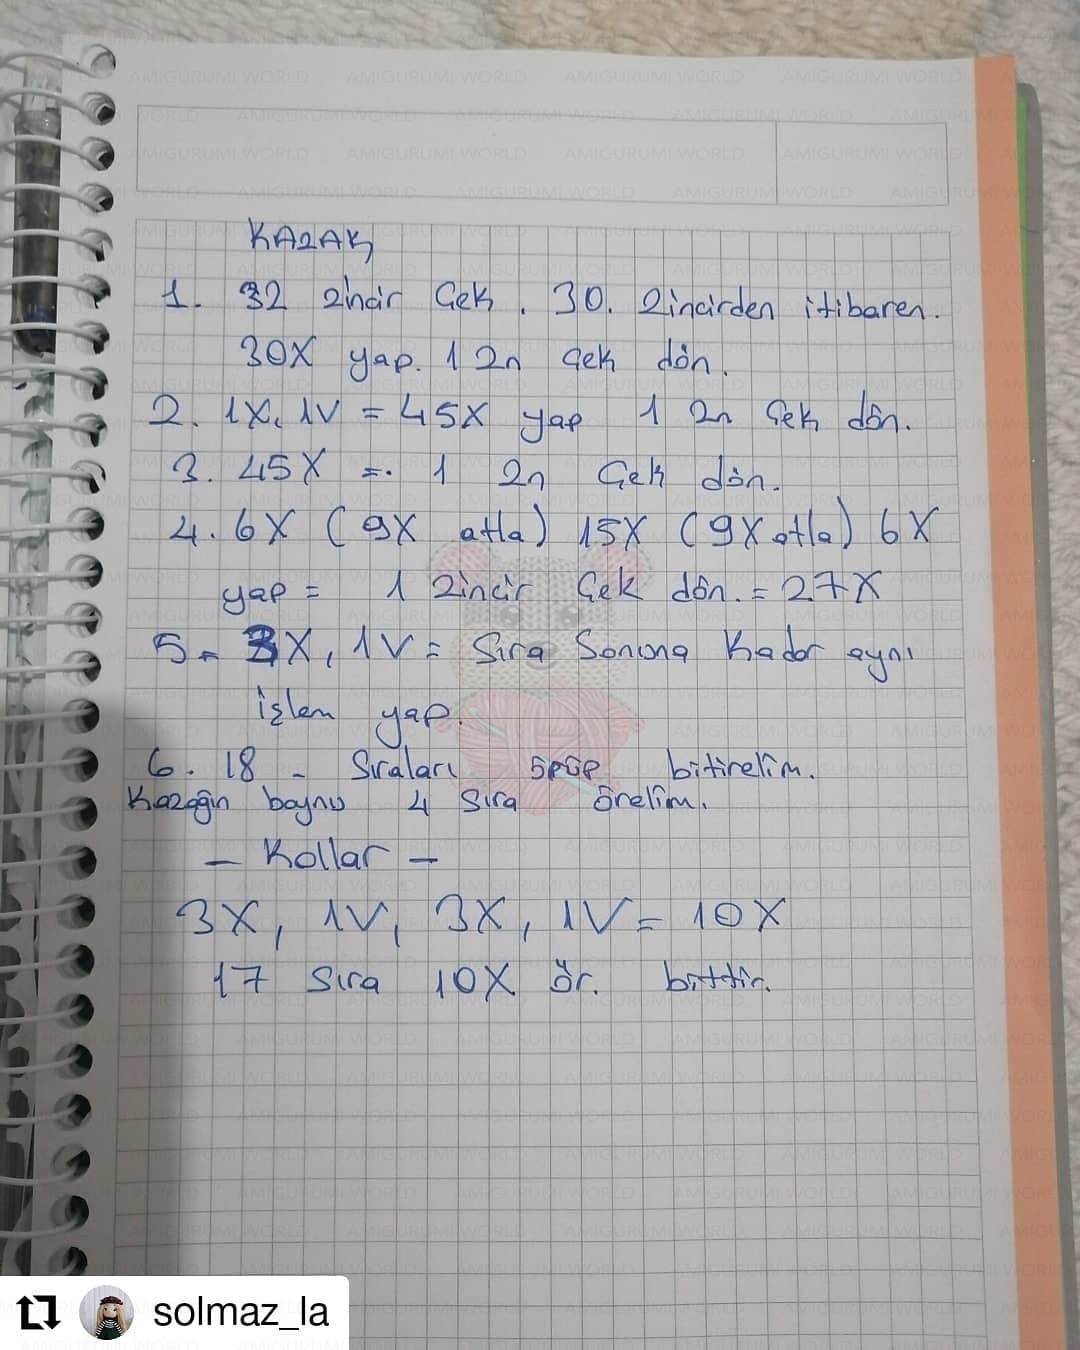 KAZAK
1. 32 zincir Çek. 30. Zincirden itibaren.
30X yap. 1 zn çek dön.
2. 1X, 1V = 45X yap 1 zn Çek dön.
3. 45X =. 1 zn Çek dön.
4. 6X (9X atla) 15X (9X atla) 6X
yap = 1 Zincir Çek dön. = 27X
5- 3X, 1V = Sıra Sonuna Kadar aynı
işlem yap.
6. 18 - Sıraları örüp bitirelim.
Kazağın boynu 4 Sıra örelim.
- Kollar -
3X, 1V, 3X, 1V = 10X
17 Sıra 10X ör. bittir.
solmaz_la
AMIGURUMI WORLD